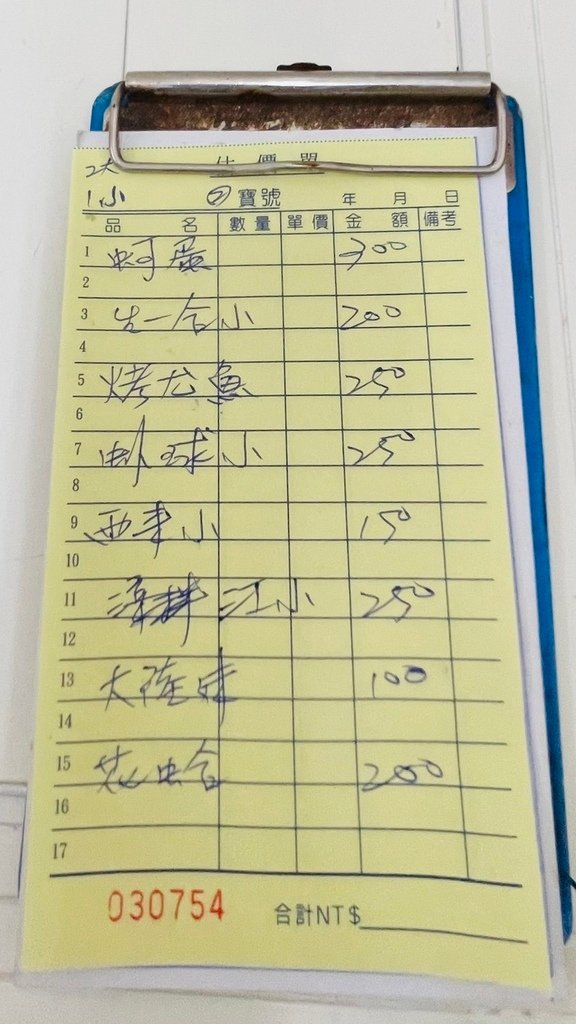 2大
1小
估價單
② 寶號 年 月 日
品名 數量 單價 金額 備考
1 蚵蛋 300
2
3 生一合小 200
4
5 烤尤魚 250
6
7 虾球小 250
8
9 西羊小 150
10
11 江小 250
12
13 大陸妹 100
14
15 花蛤 200
16
17
030754 合計NT$